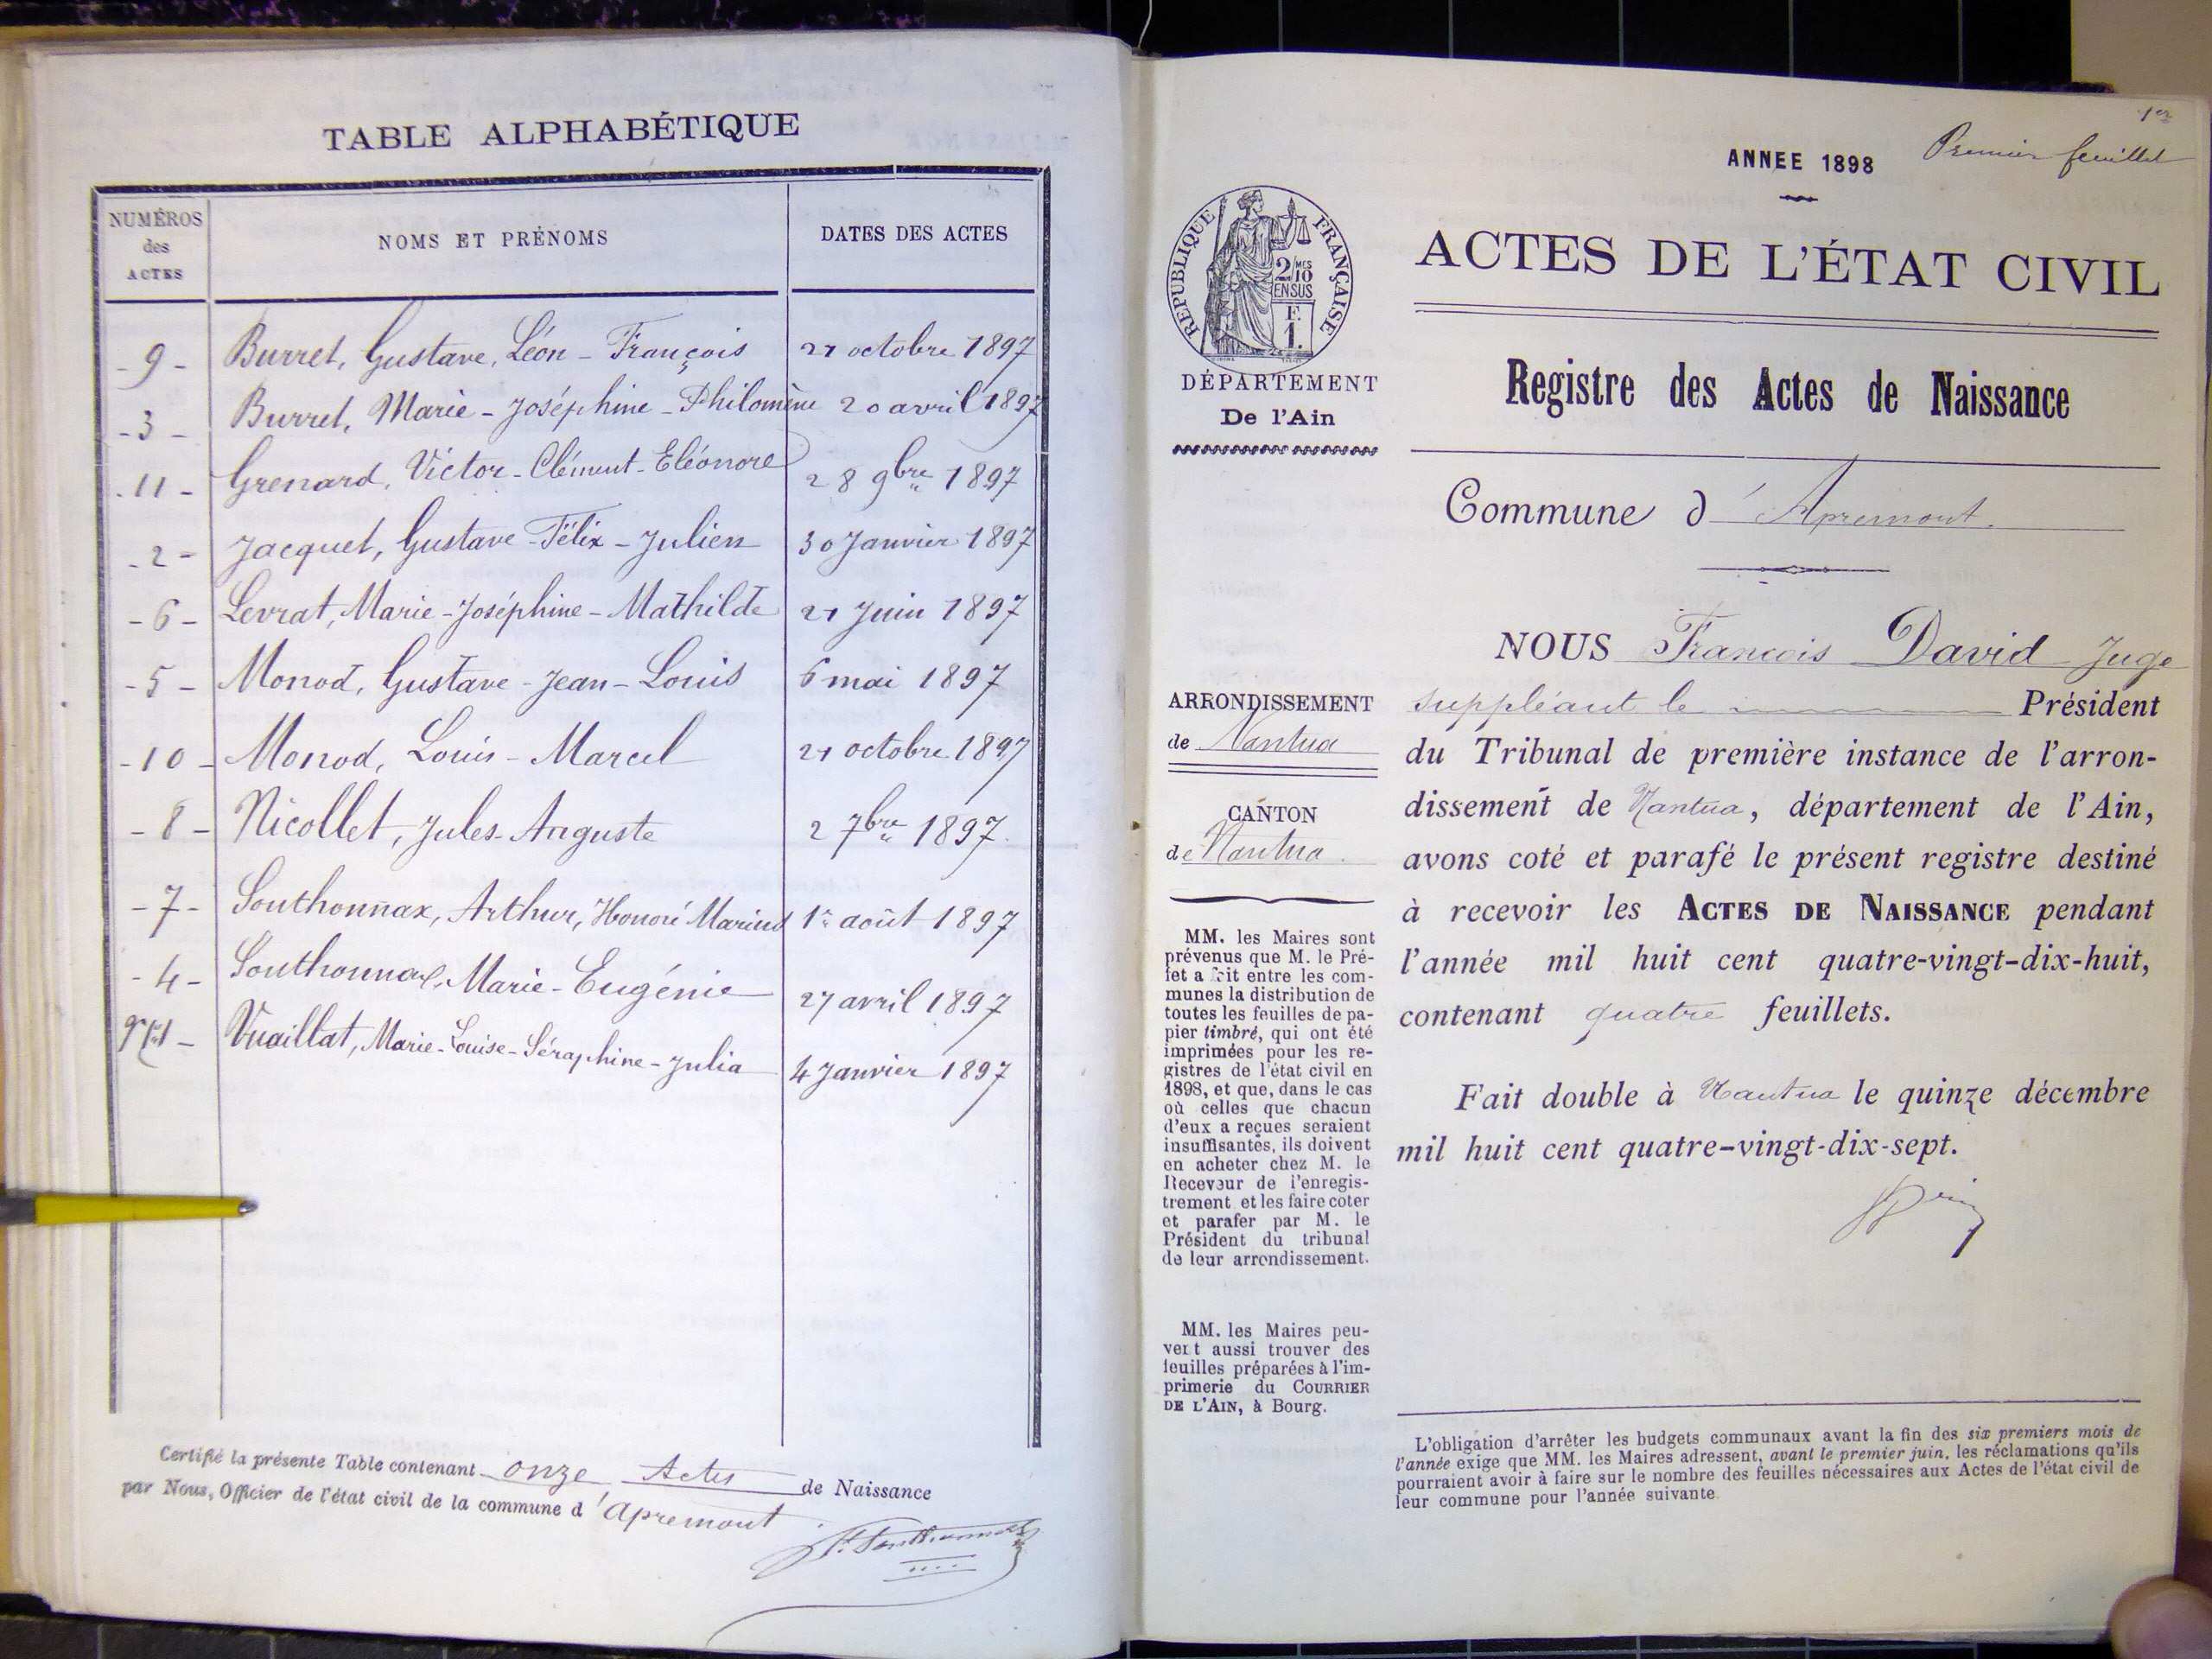 TABLE ALPHABÉTIQUE
NUMÉROS des ACTES
NOMS ET PRÉNOMS
DATES DES ACTES
- 9 - Burret, Gustave, Léon - François 21 octobre 1897
- 3 - Burret, Marie - Joséphine - Philomène 20 avril 1897
- 11 - Grenard, Victor - Clément - Eléonore 28 9bre 1897
- 2 - Jacquet, Gustave - Félix - Julien 30 Janvier 1897
- 6 - Levrat, Marie - Joséphine - Mathilde 21 Juin 1897
- 5 - Monod, Gustave - Jean - Louis 6 mai 1897
- 10 - Monod, Louis - Marcel 21 octobre 1897
- 8 - Nicollet, Jules - Auguste 2 7bre 1897
- 7 - Southonnax, Arthur, Honoré Marius 1er août 1897
- 4 - Southonnax, Marie - Eugénie 27 avril 1897
1 - Vuaillat, Marie - Louise - Séraphine - Julia 4 Janvier 1897
Certifié la présente Table contenant onze Actes de Naissance
par Nous, Officier de l'état civil de la commune d'Apremont
1er
Premier feuillet
ANNEE 1898
RÉPUBLIQUE FRANÇAISE
2/10 MES
EN SUS
F.
1.
DÉPARTEMENT
De l'Ain
ACTES DE L'ÉTAT CIVIL
Registre des Actes de Naissance
Commune d'Apremont.
NOUS François David Juge
suppléant le Président
du Tribunal de première instance de l'arron-
dissement de Nantua, département de l'Ain,
avons coté et parafé le présent registre destiné
à recevoir les ACTES DE NAISSANCE pendant
l'année mil huit cent quatre-vingt-dix-huit,
contenant quatre feuillets.
Fait double à Nantua le quinze décembre
mil huit cent quatre-vingt-dix-sept.
ARRONDISSEMENT
de Nantua
CANTON
de Nantua
MM. les Maires sont
prévenus que M. le Pré-
fet a fait entre les com-
munes la distribution de
toutes les feuilles de pa-
pier timbré, qui ont été
imprimées pour les re-
gistres de l'état civil en
1898, et que, dans le cas
où celles que chacun
d'eux a reçues seraient
insuffisantes, ils doivent
en acheter chez M. le
Receveur de l'enregis-
trement et les faire coter
et parafer par M. le
Président du tribunal
de leur arrondissement.
MM. les Maires peu-
vent aussi trouver des
feuilles préparées à l'im-
primerie du COURRIER
DE L'AIN, à Bourg.
L'obligation d'arrêter les budgets communaux avant la fin des six premiers mois de
l'année exige que MM. les Maires adressent, avant le premier juin, les réclamations qu'ils
pourraient avoir à faire sur le nombre des feuilles nécessaires aux Actes de l'état civil de
leur commune pour l'année suivante.